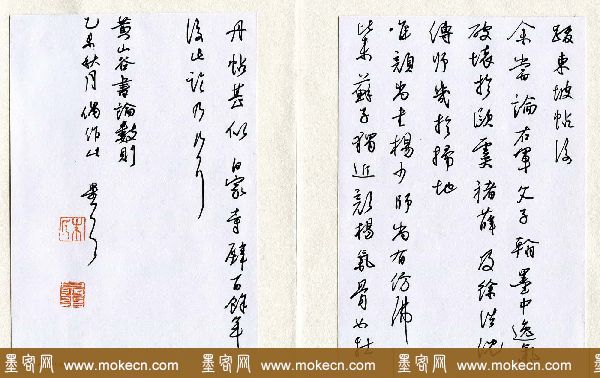 跋東坡帖後
余嘗論右軍父子翰墨中逸氣
破壞於歐虞褚薛及徐浩沈
傳師幾於掃地
惟顏尚書楊少師尚有仿佛
比來蘇子獨近顏楊氣骨如牡
丹帖甚似白家寺壁百餘年
後此論乃行
黃山谷書論數則
乙未秋月偶作此
墨客网 www.mokecn.com 墨客网 www.mokecn.com 墨客网 www.mokecn.com